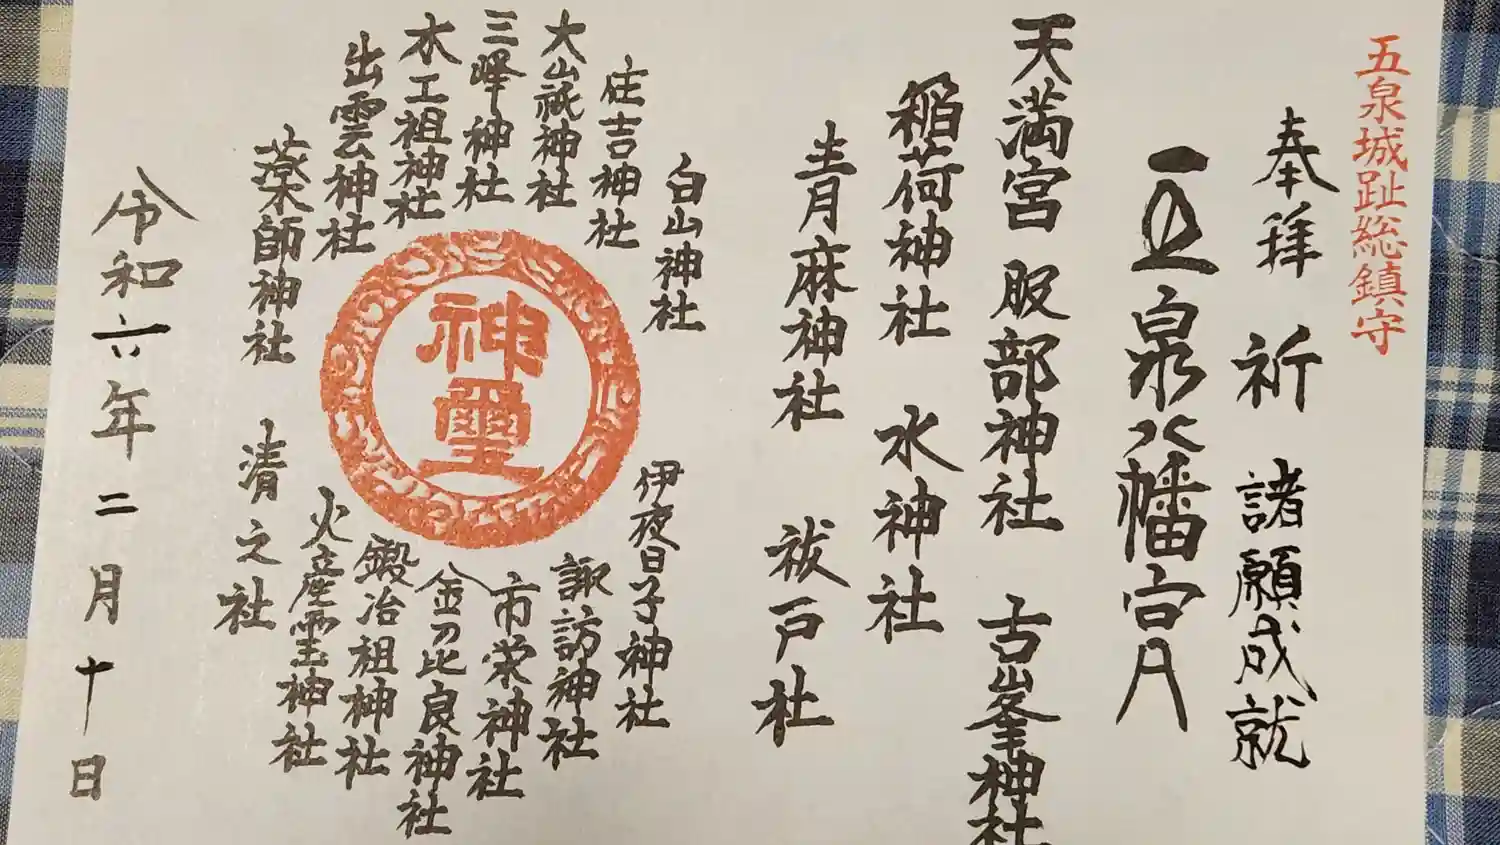 五泉城趾総鎮守
奉拝 祈 諸願成就
五泉八幡宮
天満宮 服部神社 古峯神社
稲荷神社 水神社
青麻神社 祓戸社
白山神社
住吉神社
大山祇神社
三峰神社
木工祖神社
出雲神社
薬師神社
神璽
伊夜日子神社
諏訪神社
市栄神社
金刀比良神社
鍛冶祖神社
火産霊神社
清之社
令和六年二月十日